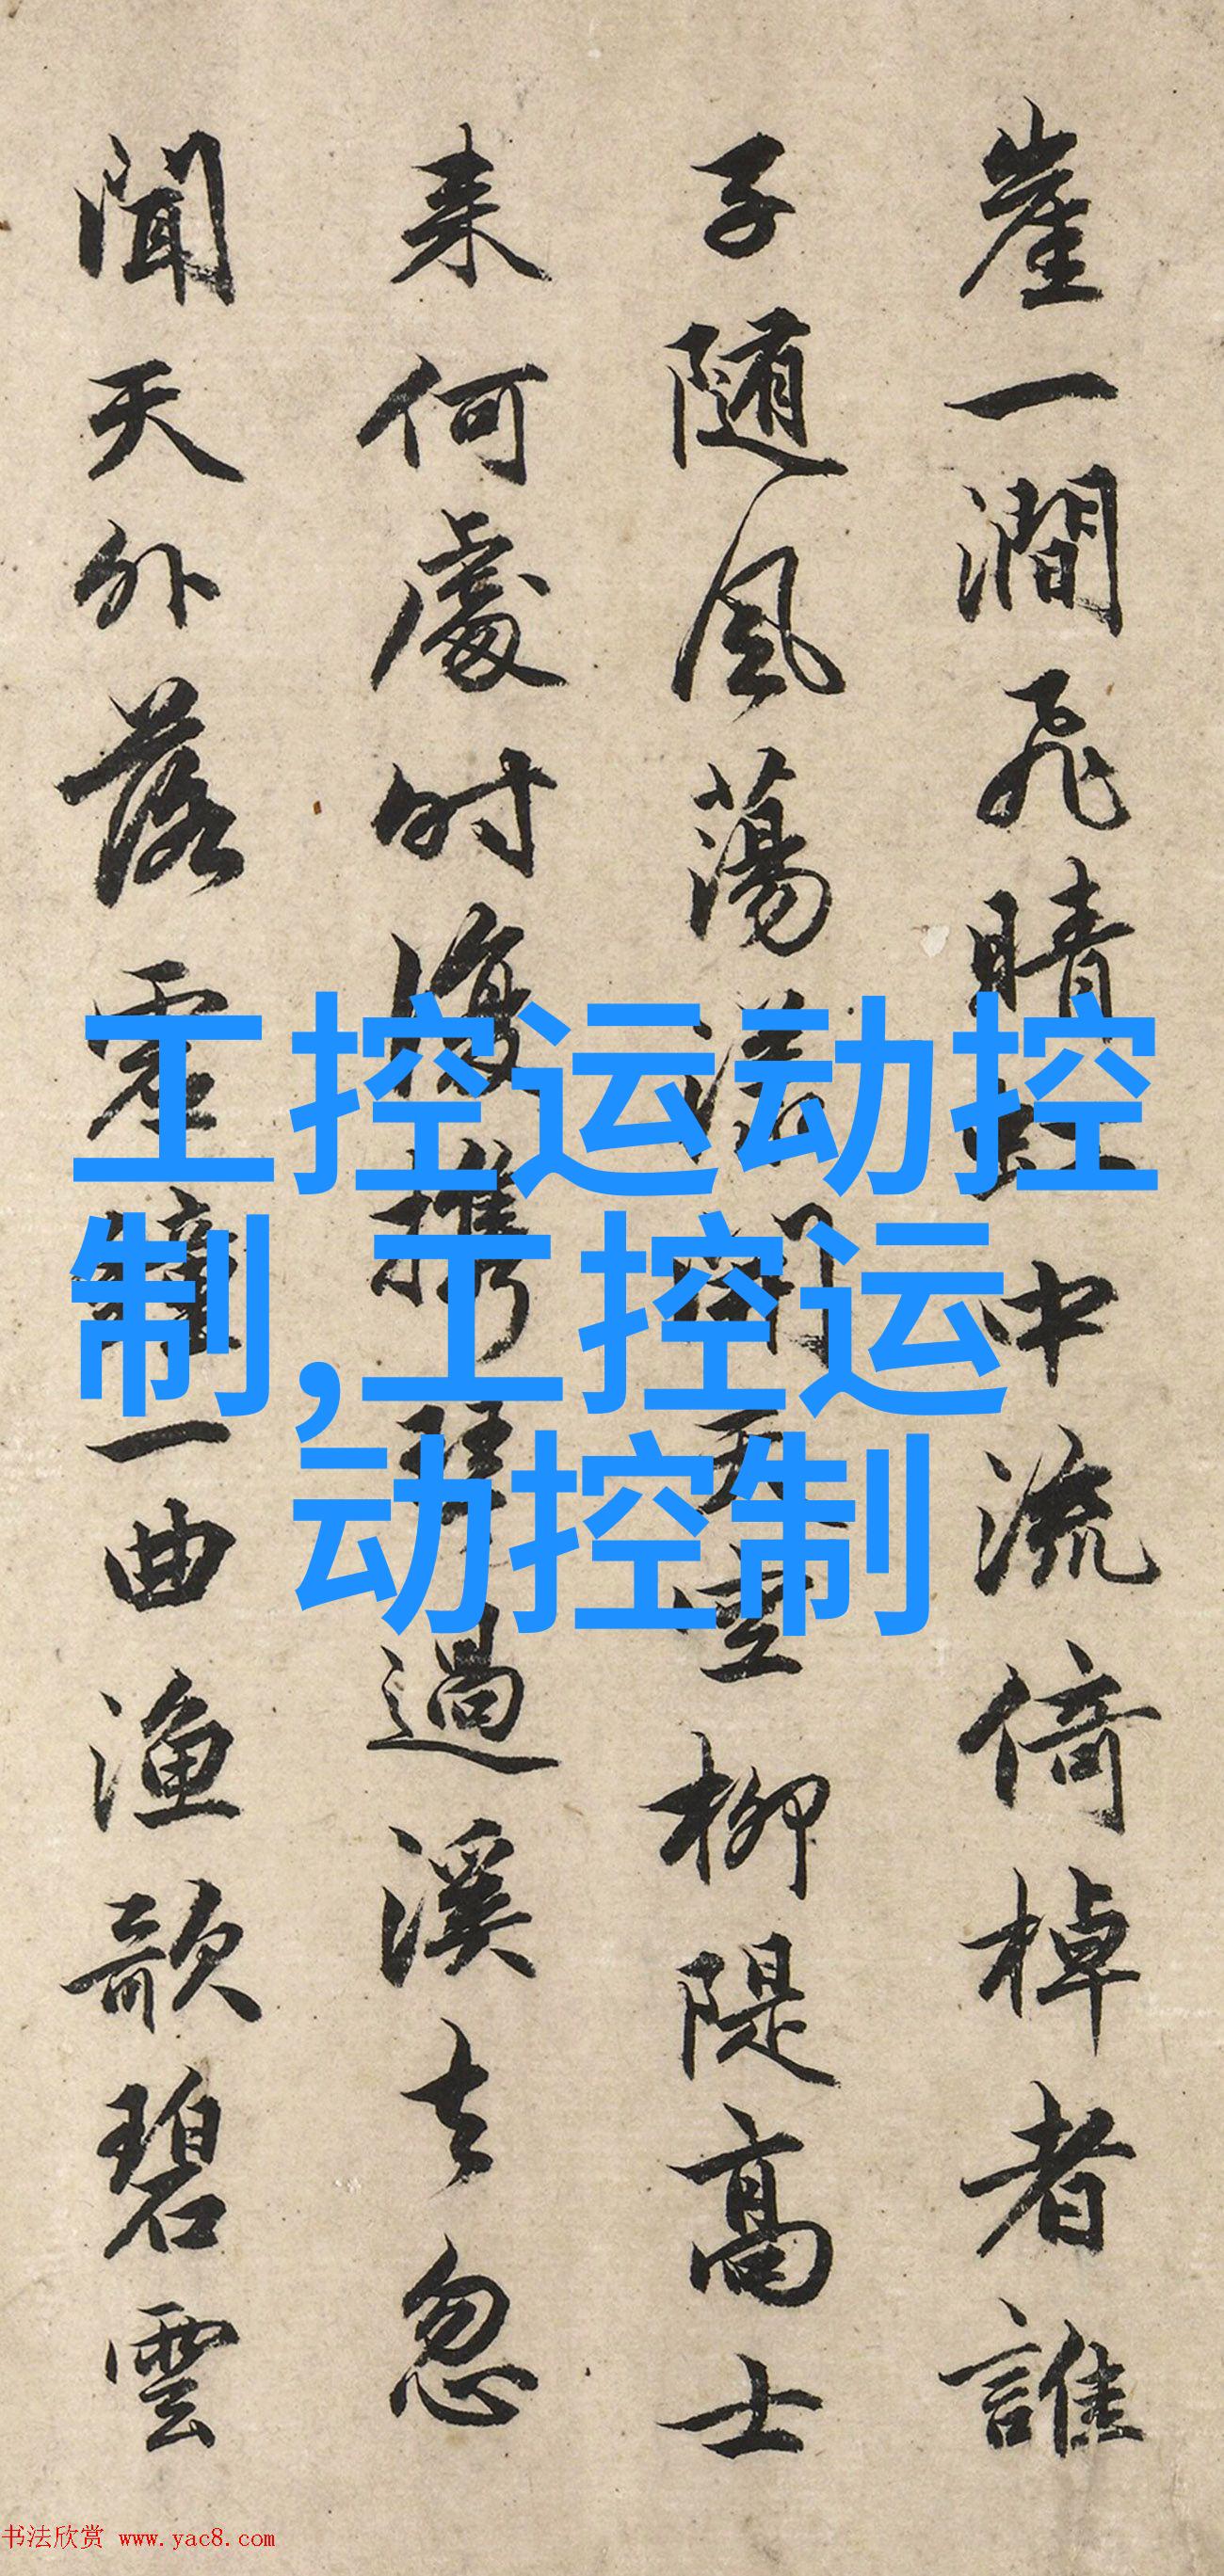 崖一澗飛晴虹中流倚棹者誰
子随風蕩漾天柳隄高士
来何處时復携琴過溪去忽
聞天外落霞一曲漁歌碧雲
工控运动控
制,工控运
动控制
书法欣赏 www.yac8.com